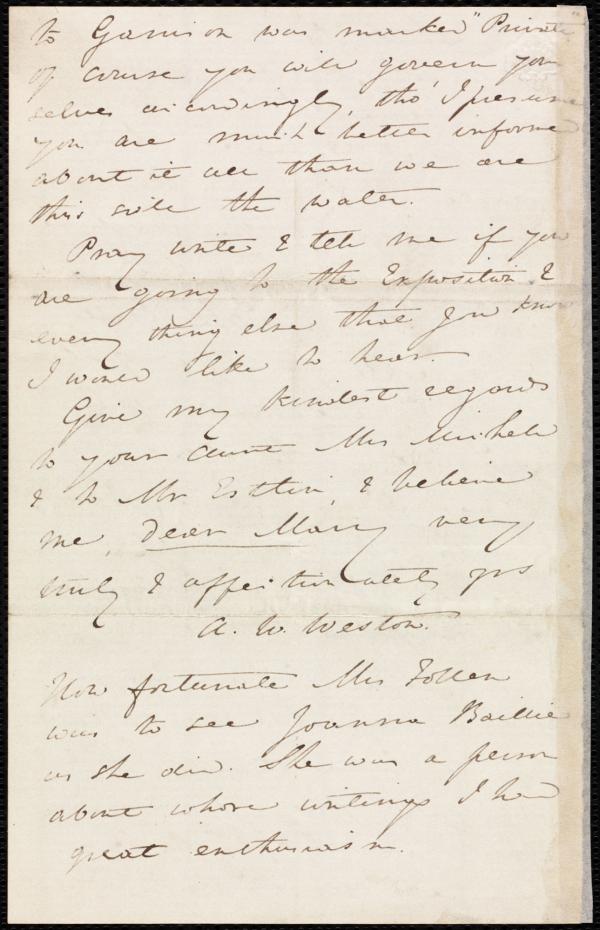 to Garrison was marked "Private"
of course you will govern your
selves accordingly, tho' I presume
you are much better informed
about it all than we are
this side the water.
Pray write & tell me if you
are going to the Exposition &
every thing else that you know
I would like to hear.
Give my kindest regards
to your aunt Mrs Michell
& to Mr Estlin, & believe
me, dear Mary very
truly & affectionately yrs
A. W. Weston.
How fortunate Mrs Follen
was to see Joanna Baillie
as she did. She was a person
about whose writings I had
great enthusiasm.